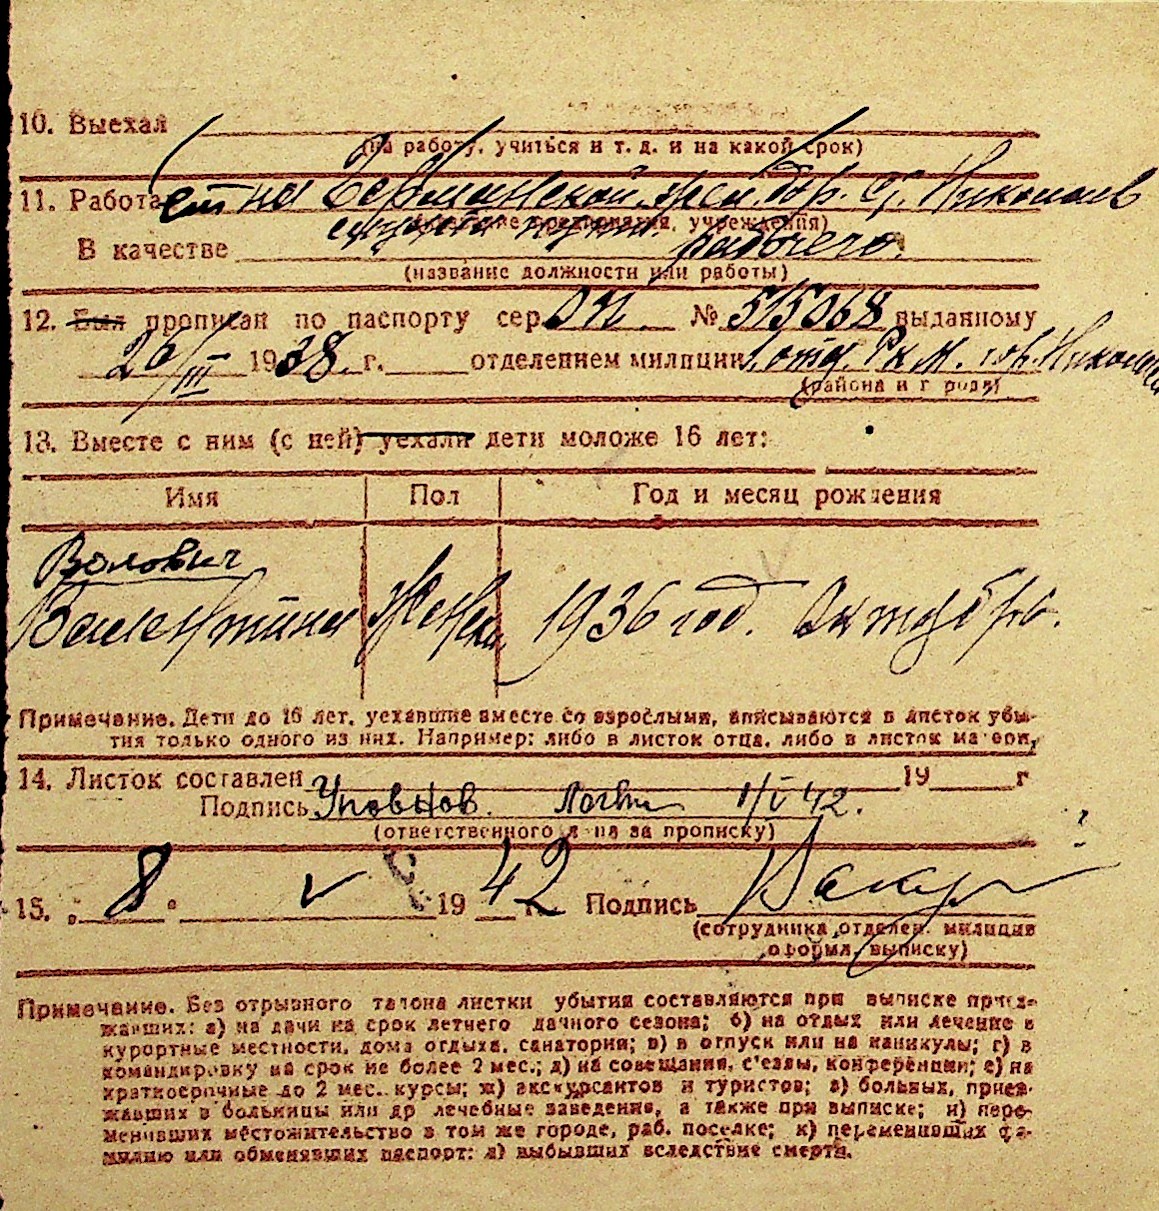 10. Выехал
(на работу, учиться и т. д. и на какой срок)
11. Работает на Германской жел. дор. ст. Николаев
(название предприятия, учреждения)
В качестве рабочего.
(название должности или работы)
12. Был прописан по паспорту сер. № 515068 выданному
20/III 1938 г. отделением милиции 1 отд. Р.К.М. гор. Николаев
(района и города)
13. Вместе с ним (с ней) уехали дети моложе 16 лет:
Имя Пол Год и месяц рождения
Волович
Валентина Женск. 1936 год. Октябрь.
Примечание. Дети до 16 лет, уехавшие вместе со взрослыми, вписываются в листок убы-
тия только одного из них. Например: либо в листок отца, либо в листок матери,
14. Листок составлен 19 г
Подпись 1/V 42.
(ответственного л-ца за прописку)
15. „ 8 " V 1942 г. Подпись
(сотрудника отделен. милиции
оформл. выписку)
Примечание. Без отрывного талона листки убытия составляются при выписке приез-
жавших: а) на дачи на срок летнего дачного сезона; б) на отдых или лечение в
курортные местности, дома отдыха, санатории; в) в отпуск или на каникулы; г) в
командировку на срок не более 2 мес.; д) на совещания, с'езды, конференции; е) на
краткосрочные до 2 мес. курсы; ж) экскурсантов и туристов; з) больных, приез-
жавших в больницы или др лечебные заведения, а также при выписке; и) пере-
менивших местожительство в том же городе, раб. поселке; к) переменивших фа-
милию или обменявших паспорт: л) выбывших вследствие смерти.